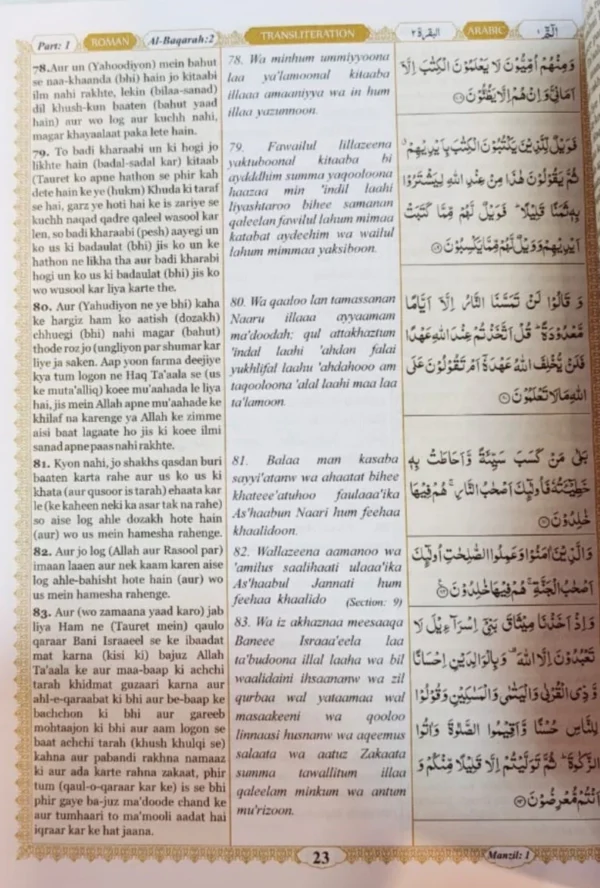 Part: 1 ROMAN Al-Baqarah:2 TRANSLITERATION البقرة ٢ ARABIC الٓمّٓ ١
78.Aur un (Yahoodiyon) mein bahut
se naa-khaanda (bhi) hain jo kitaabi
ilm nahi rakhte, lekin (bilaa-sanad)
dil khush-kun baaten (bahut yaad
hain) aur wo log aur kuchh nahi,
magar khayaalaat paka lete hain.
79. To badi kharaabi un ki hogi jo
likhte hain (badal-sadal kar) kitaab
(Tauret ko apne hathon se phir kah
dete hain ke ye (hukm) Khuda ki taraf
se hai, garz ye hoti hai ke is zariye se
kuchh naqad qadre qaleel wasool kar
len, so badi kharaabi (pesh) aayegi un
ko us ki badaulat (bhi) jis ko un ke
hathon ne likha tha aur badi kharabi
hogi un ko us ki badaulat (bhi) jis ko
wo wusool kar liya karte the.
80. Aur (Yahudiyon ne ye bhi) kaha
ke hargiz ham ko aatish (dozakh)
chhuegi (bhi) nahi magar (bahut)
thode roz jo (ungliyon par shumar kar
liye ja saken. Aap yoon farma deejiye
kya tum logon ne Haq Ta'aala se (us
ke muta'alliq) koee mu'aahada le liya
hai, jis mein Allah apne mu'aahade ke
khilaf na karenge ya Allah ke zimme
aisi baat lagaate ho jis ki koee ilmi
sanad apne paas nahi rakhte.
81. Kyon nahi, jo shakhs qasdan buri
baaten karta rahe aur us ko us ki
khata (aur qusoor is tarah) ehaata kar
le (ke kaheen neki ka asar tak na rahe)
so aise log ahle dozakh hote hain
(aur) wo us mein hamesha rahenge.
82. Aur jo log (Allah aur Rasool par)
imaan laaen aur nek kaam karen aise
log ahle-bahisht hote hain (aur) wo
us mein hamesha rahenge.
83. Aur (wo zamaana yaad karo) jab
liya Ham ne (Tauret mein) qaulo
qaraar Bani Israaeel se ke ibaadat
mat karna (kisi ki) bajuz Allah
Ta'aala ke aur maa-baap ki achchi
tarah khidmat guzaari karna aur
ahl-e-qaraabat ki bhi aur be-baap ke
bachchon ki bhi aur gareeb
mohtaajon ki bhi aur aam logon se
baat achchi tarah (khush khulqi se)
kahna aur pabandi rakhna namaaz
ki aur ada karte rahna zakaat, phir
tum (qaul-o-qaraar kar ke) is se bhi
phir gaye ba-juz ma'doode chand ke
aur tumhaari to ma'mooli aadat hai
iqraar kar ke hat jaana.
78. Wa minhum ummiyyoona
laa ya'lamoonal kitaaba
illaaa amaaniyya wa in hum
illaa yazunnoon.
79. Fawailul lillazeena
yaktuboonal kitaaba bi
aydddhim summa yaqooloona
haazaa min 'indil laahi
liyashtaroo bihee samanan
qaleelan fawilul lahum mimaa
katabat aydeehim wa wailul
lahum mimmaa yaksiboon.
80. Wa qaaloo lan tamassanan
Naaru illaaa ayyaamam
ma'doodah; qul attakhaztum
'indal laahi 'ahdan falai
yukhlifal laahu 'ahdahooo am
taqooloona 'alal laahi maa laa
ta'lamoon.
81. Balaa man kasaba
sayyi'atanw wa ahaatat bihee
khateee'atuhoo faulaaa'ika
As'haabun Naari hum feehaa
khaalidoon.
82. Wallazeena aamanoo wa
'amilus saalihaati ulaaa'ika
As'haabul Jannati hum
feehaa khaalido (Section: 9)
83. Wa iz akhaznaa meesaaqa
Baneee Israaa'eela laa
ta'budoona illal laaha wa bil
waalidaini ihsaananw wa zil
qurbaa wal yataamaa wal
masaakeeni wa qooloo
linnaasi husnanw wa aqeemus
salaata wa aatuz Zakaata
summa tawallitum illaa
qaleelam minkum wa antum
mu'rizoon.
وَمِنْهُمْ اُمِّيُّوْنَ لَا يَعْلَمُوْنَ الْكِتٰبَ اِلَّآ
اَمَانِيَّ وَاِنْ هُمْ اِلَّا يَظُنُّوْنَ ٧٨
فَوَيْلٌ لِّلَّذِيْنَ يَكْتُبُوْنَ الْكِتٰبَ بِاَيْدِيْهِمْ
ثُمَّ يَقُوْلُوْنَ هٰذَا مِنْ عِنْدِ اللّٰهِ لِيَشْتَرُوْا
بِهٖ ثَمَنًا قَلِيْلًا ؕ فَوَيْلٌ لَّهُمْ مِّمَّا كَتَبَتْ
اَيْدِيْهِمْ وَوَيْلٌ لَّهُمْ مِّمَّا يَكْسِبُوْنَ ٧٩
وَ قَالُوْا لَنْ تَمَسَّنَا النَّارُ اِلَّآ اَيَّامًا
مَّعْدُوْدَةً ؕ قُلْ اَتَّخَذْتُمْ عِنْدَ اللّٰهِ عَهْدًا
فَلَنْ يُّخْلِفَ اللّٰهُ عَهْدَهٗٓ اَمْ تَقُوْلُوْنَ عَلَى
اللّٰهِ مَا لَا تَعْلَمُوْنَ ٨٠
بَلٰى مَنْ كَسَبَ سَيِّئَةً وَّاَحَاطَتْ بِهٖ
خَطِيْٓئَتُهٗ فَاُولٰٓئِكَ اَصْحٰبُ النَّارِ ۚ هُمْ فِيْهَا
خٰلِدُوْنَ ٨١
وَالَّذِيْنَ اٰمَنُوْا وَعَمِلُوا الصّٰلِحٰتِ اُولٰٓئِكَ
اَصْحٰبُ الْجَنَّةِ ۚ هُمْ فِيْهَا خٰلِدُوْنَ ٨٢
وَاِذْ اَخَذْنَا مِيْثَاقَ بَنِيْٓ اِسْرَآءِيْلَ لَا
تَعْبُدُوْنَ اِلَّا اللّٰهَ ۟ وَبِالْوَالِدَيْنِ اِحْسَانًا
وَّ ذِي الْقُرْبٰى وَالْيَتٰمٰى وَالْمَسٰكِيْنِ وَقُوْلُوْا
لِلنَّاسِ حُسْنًا وَّاَقِيْمُوا الصَّلٰوةَ وَاٰتُوا
الزَّكٰوةَ ؕ ثُمَّ تَوَلَّيْتُمْ اِلَّا قَلِيْلًا مِّنْكُمْ وَ
اَنْتُمْ مُّعْرِضُوْنَ ٨٣
23 Manzil: 1